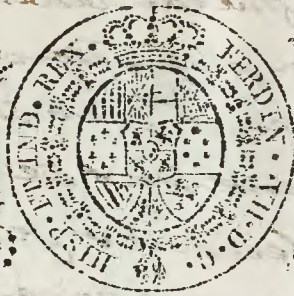 FERDIN • VII • D • G • HISP • ET IND • REX •